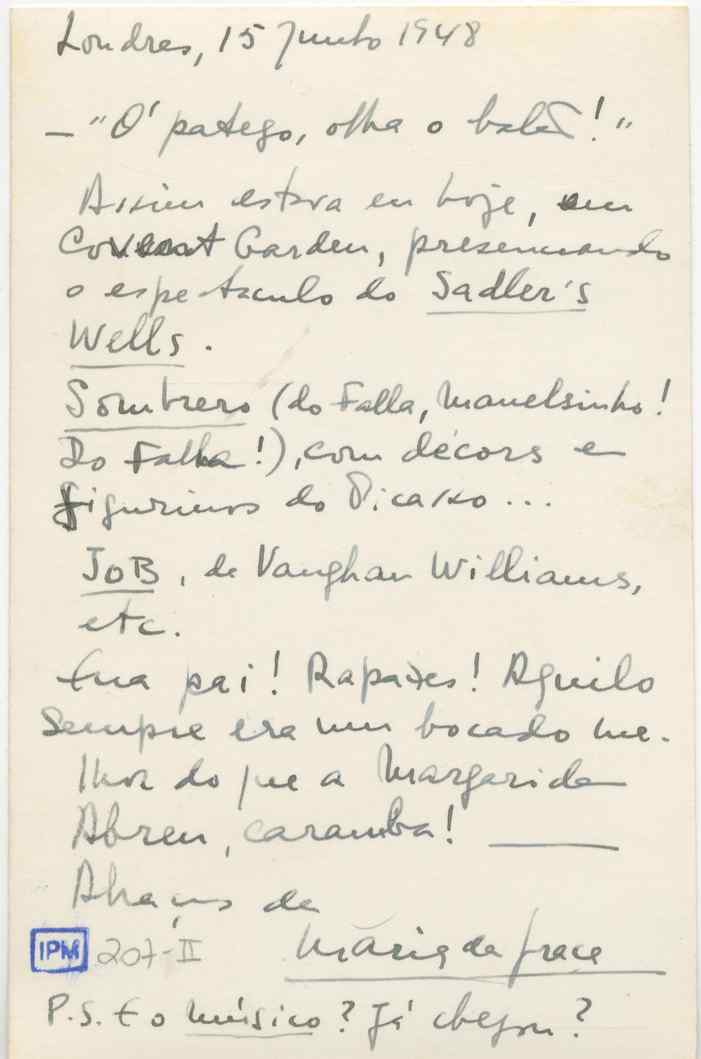 Londres, 15 Junho 1948
— "Ó patego, olha o balão!"
Assim estava eu hoje, em
Covent Garden, presenciando
o espectaculo do Sadler's
Wells.
Sombrero (do Falla, Manuelsinho!
Do Falla!), com décors e
figurinos do Picasso...
JOB, de Vaughan Williams,
etc.
Ena pai! Rapazes! Aquilo
sempre era um bocado me-
lhor do que a Margarida
Abreu, caramba! —
Abraços de
Maria da Graça
IPM 207-II
P.S. E o músico? Já chegou?